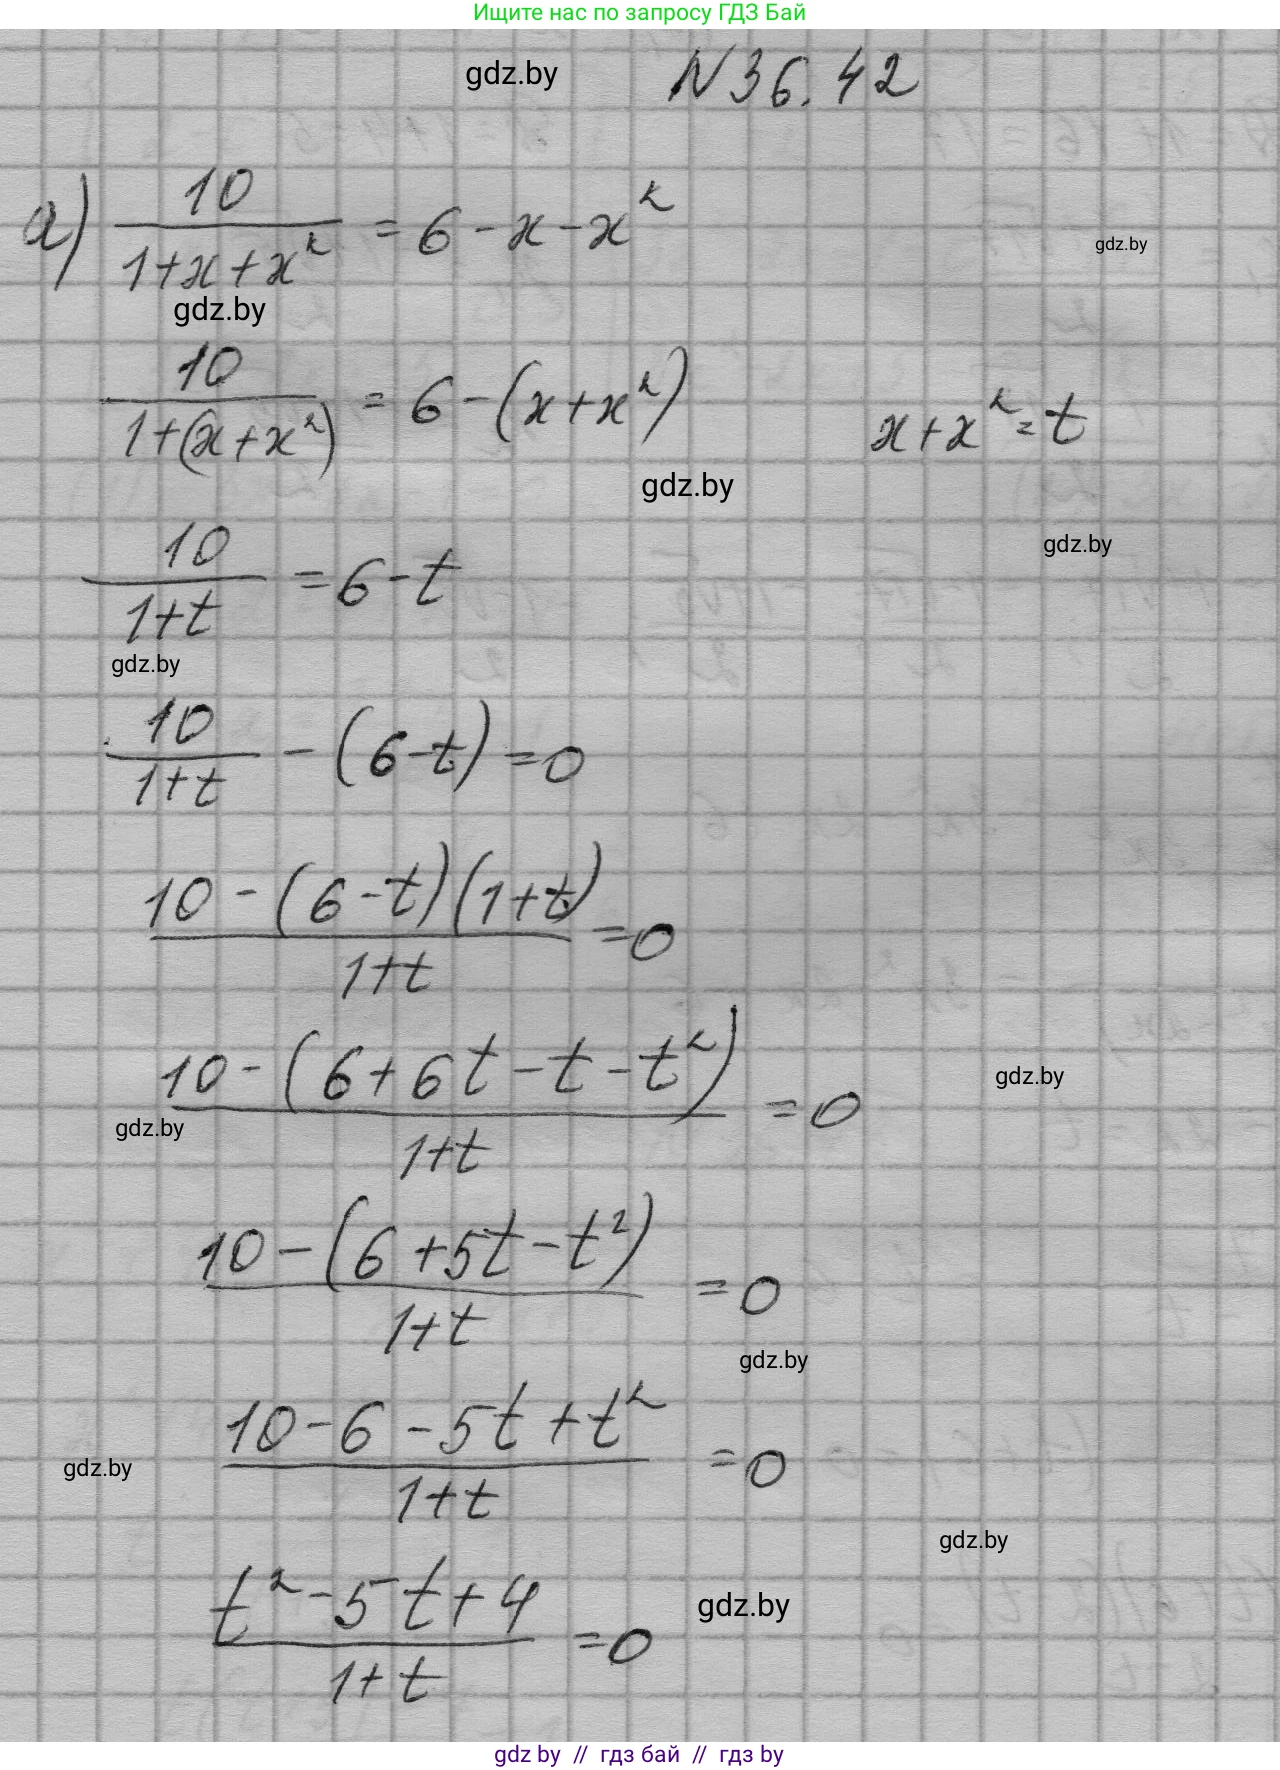 Ищите нас по запросу ГДЗ Бай
gdz.by
N 36.42
а) 10/(1+x+x²) = 6-x-x²
gdz.by
gdz.by
10/(1+(x+x²)) = 6-(x+x²)
x+x²=t
gdz.by
gdz.by
10/(1+t) = 6-t
gdz.by
10/(1+t) - (6-t) = 0
(10-(6-t)(1+t))/(1+t) = 0
(10-(6+6t-t-t²))/(1+t) = 0
gdz.by
gdz.by
(10-(6+5t-t²))/(1+t) = 0
gdz.by
(10-6-5t+t²)/(1+t) = 0
gdz.by
gdz.by
(t²-5t+4)/(1+t) = 0
gdz.by
gdz by // гдз бай // гдз by